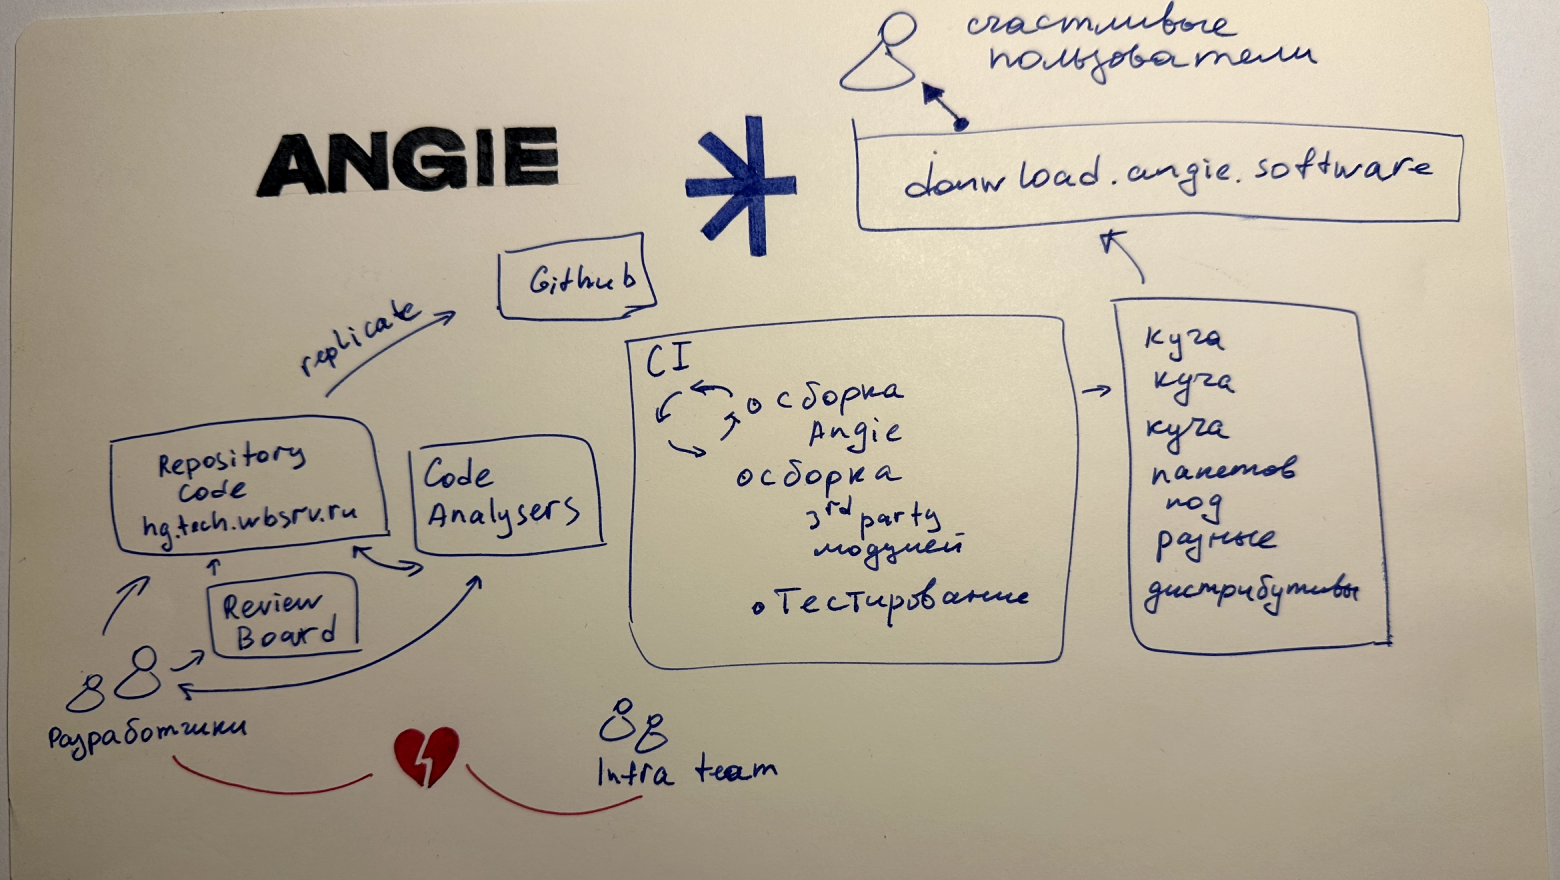 счастливые
пользователи
ANGIE
donwload.angie.software
Github
replicate
Repository
Code
hg.tech.wbsrv.ru
Code
Analysers
Review
Board
Разработчики
CI
сборка
Angie
сборка
3rd party
модулей
Тестирование
куча
куча
куча
пакетов
под
разные
дистрибутивы
Infra team